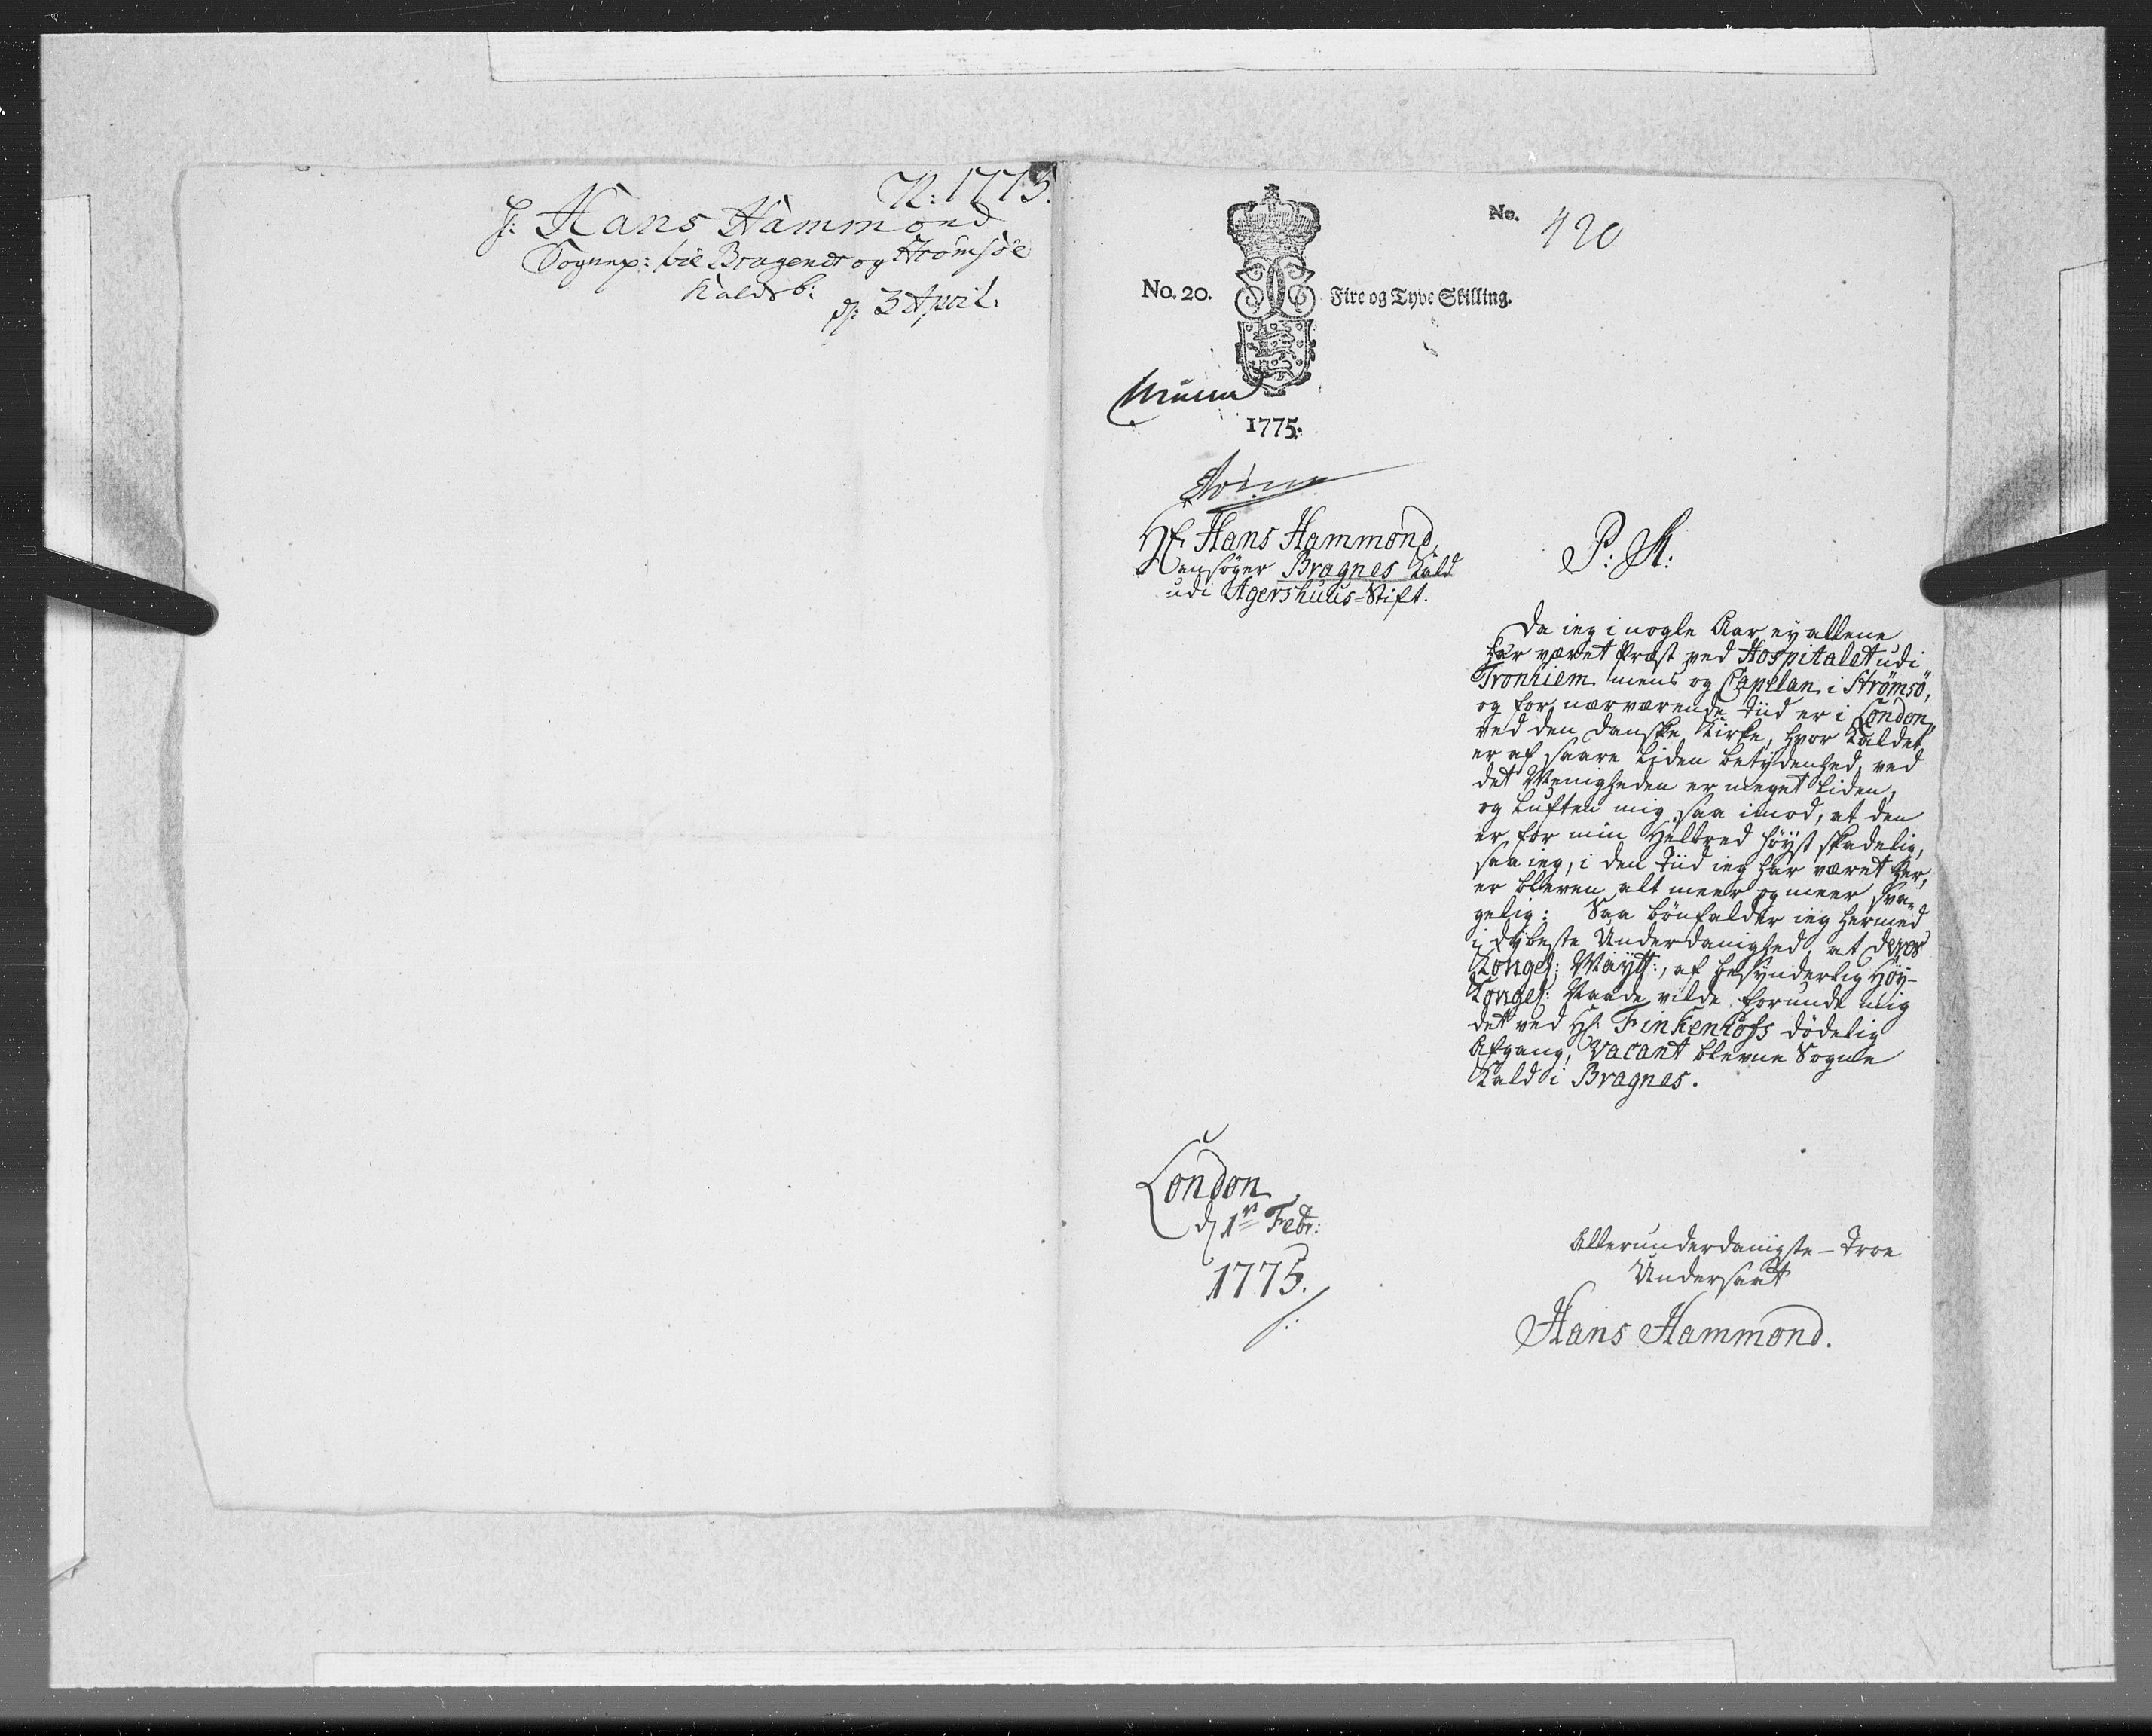 N: 1775.
H: Hans Hammond
Sognep: til Bragenes og Strömsöe
Kalds b:
d: 3 April.
No. 420
No. 20. Fire og Tyve Skilling.
1775.
Hr. Hans Hammond,
ansøger Bragnes Kald
udi Agershuus-Stift.
P: M:
Da ieg i nogle Aar ey allene
har været Præst ved Hospitalet udi
Tronhiem mens og Capelan i Strømsö,
og for nærværende Tiid er i London,
ved den danske Kirke, hvor Kaldet
er af saare liden betydenhed, ved
det Menigheden er meget liden,
og Luften mig saa imod, at den
er for min Helbred höyst skadelig,
saa ieg, i den Tiid ieg har været her,
er bleven alt meer og meer sva-
gelig: Saa bönfalder ieg hermed
i dybeste Underdanighed, at Deres
Kongel: Mayt:, af besynderlig Höy-
Kongel: Naade vilde forunde mig
det ved Hr. Finkenhofs dödelig
Afgang, vacant blevne Sogne
Kald i Bragnes.
London
d 1te Febr:
1775.
Allerunderdanigste-Troe
Undersaat
Hans Hammond.